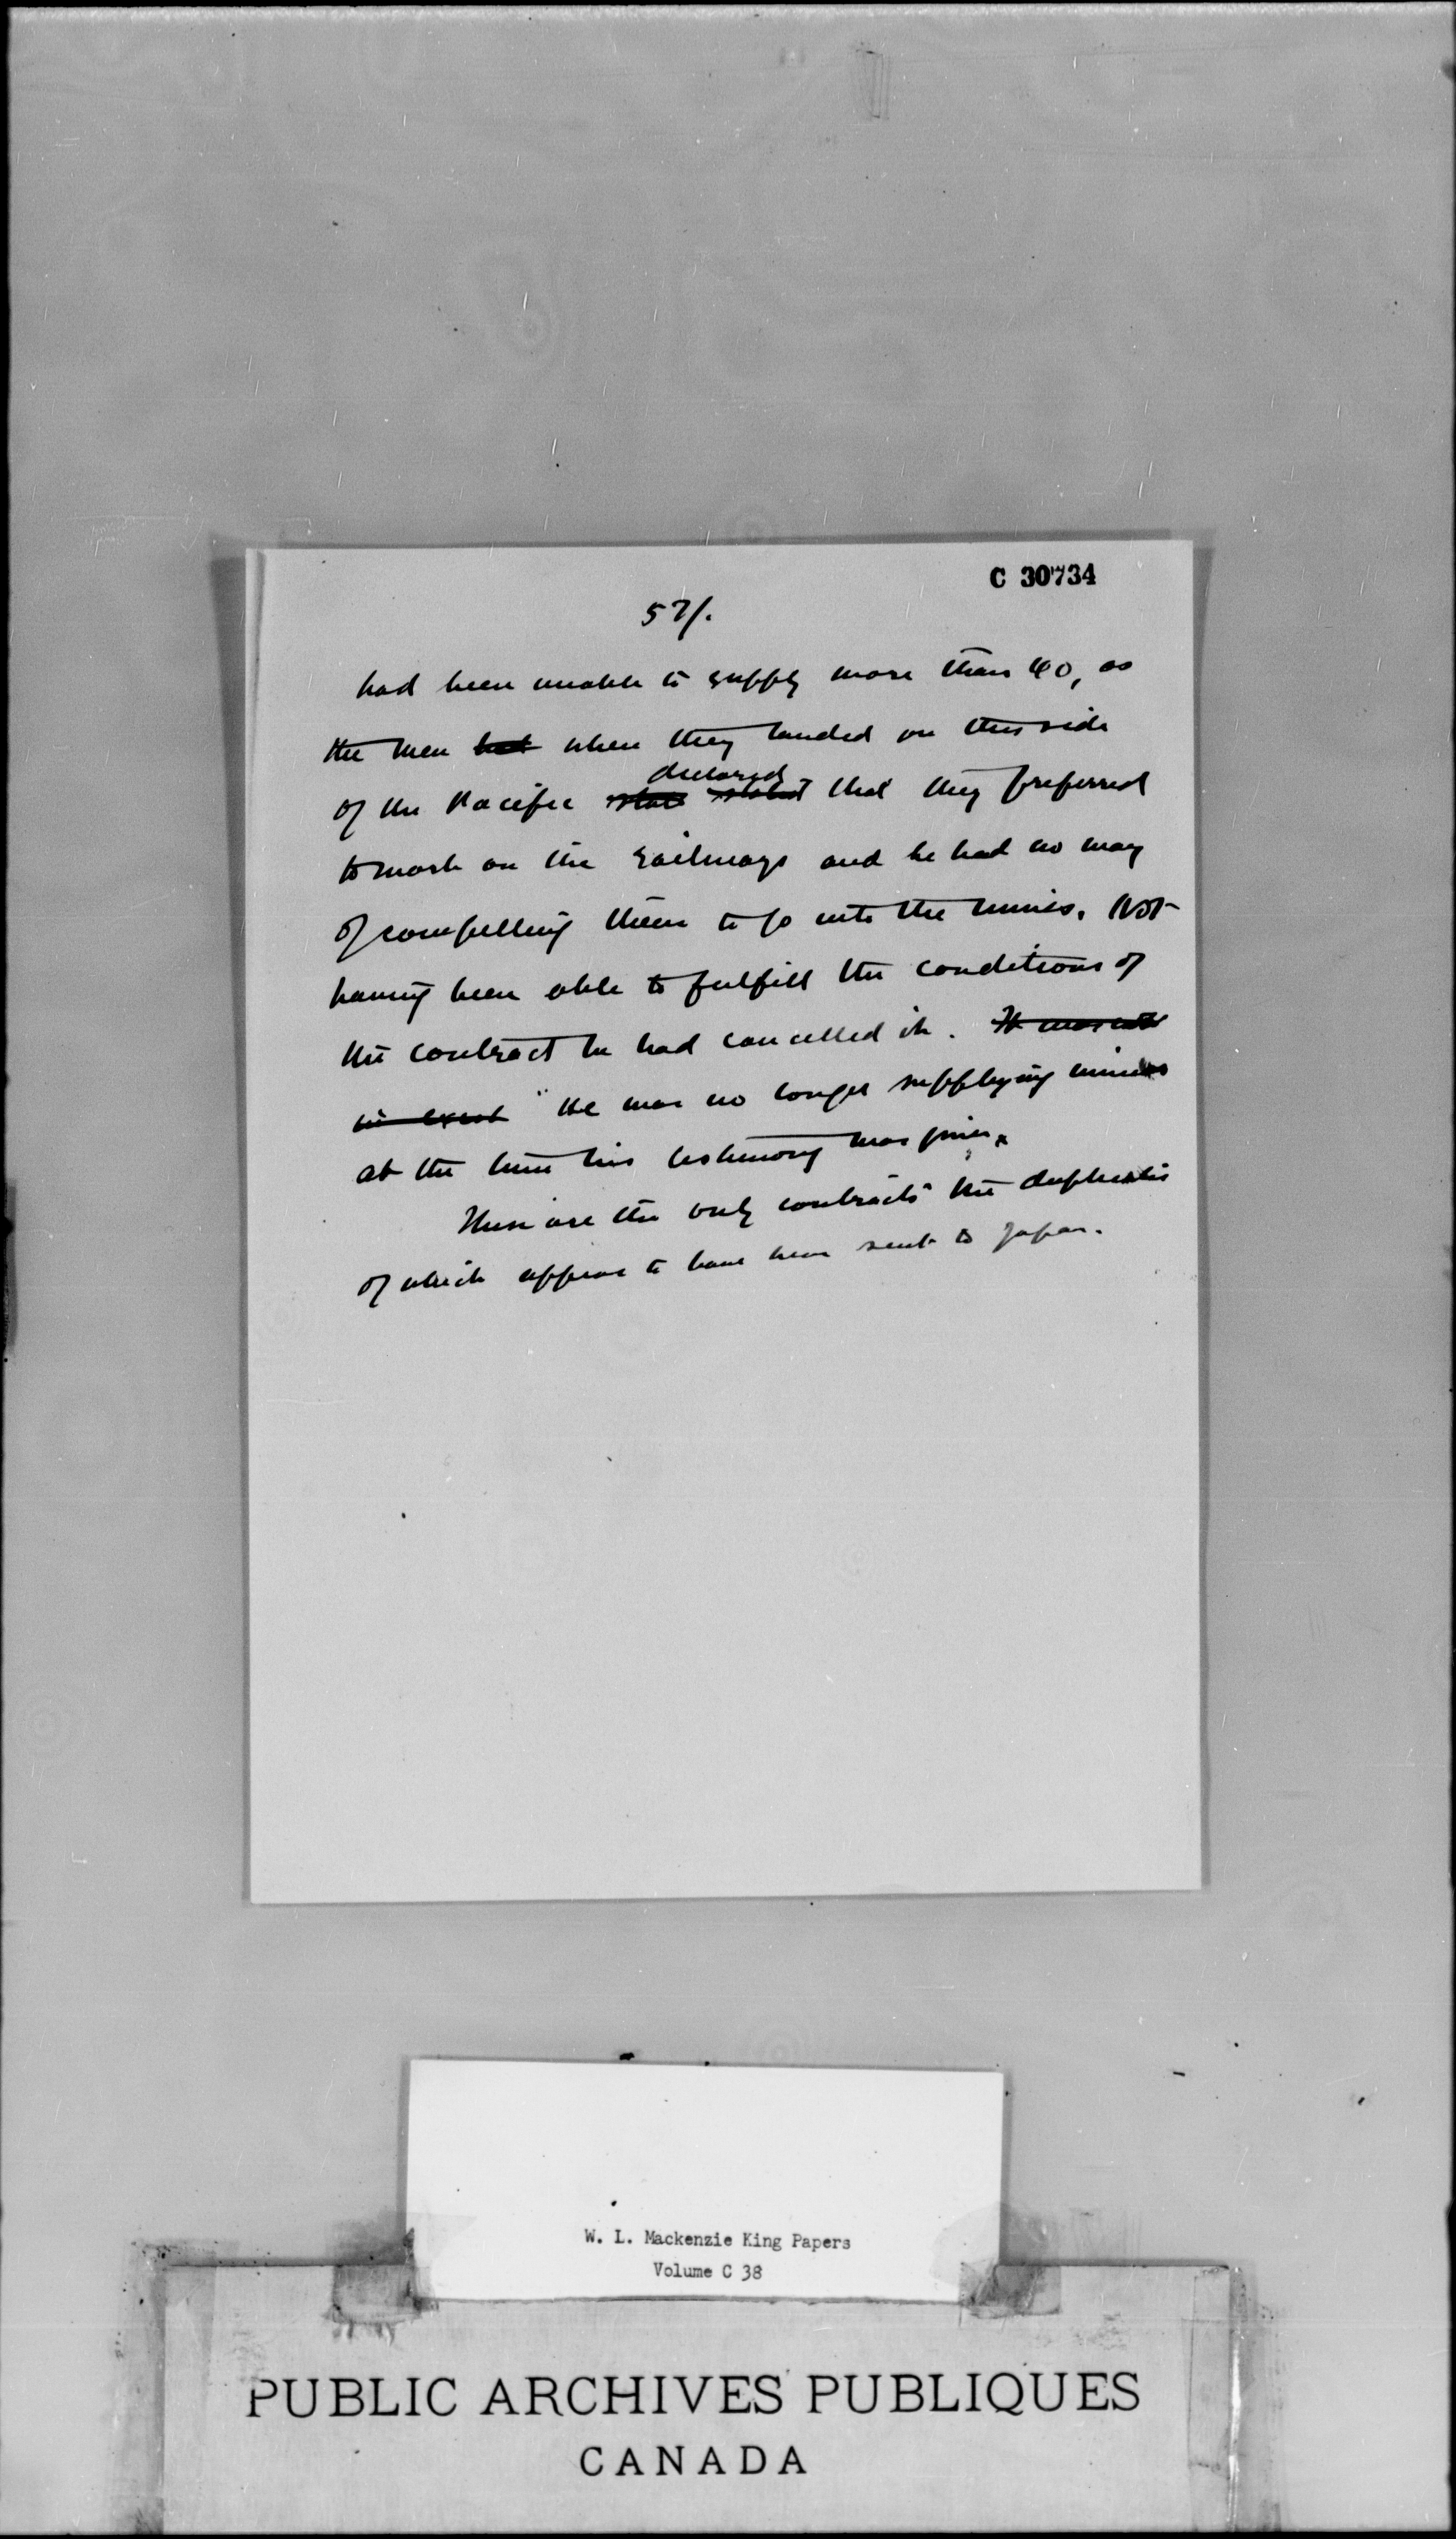 C 30734
57/.
had been unable to supply more than 40, as
the men had when they landed on this side
declared
of the Pacific state stated that they preferred
to work on the railways and he had no way
of compelling them to go into the mines. Not
having been able to fulfill the conditions of
the contract he had cancelled it. It was
He was no longer supplying miners
at the time his testimony was given.
These are the only contracts the duplicates
of which appear to have been sent to Japan.
W. L. Mackenzie King Papers
Volume C 38
PUBLIC ARCHIVES PUBLIQUES
CANADA